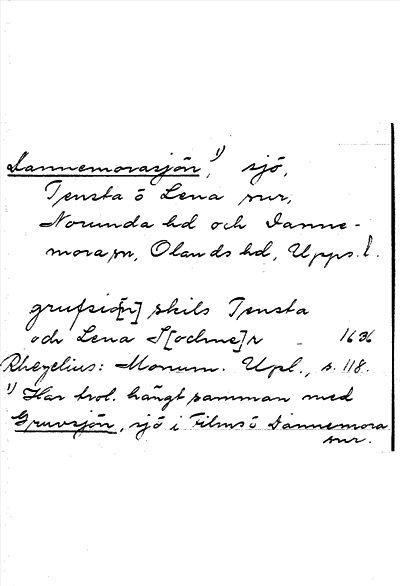 Dannemorasjön,¹⁾ sjö,
Tensta o Lena snr,
Norunda hd och Danne-
mora sn, Olands hd, Upps. l.
grufsiö[n] skils Tensta
och Lena S[ochne]r – 1636
Rhezelius: Monum. Upl., s. 118.
¹⁾ Har trol. hängt samman med
Gruvsjön, sjö i Films o Dannemora
snr.